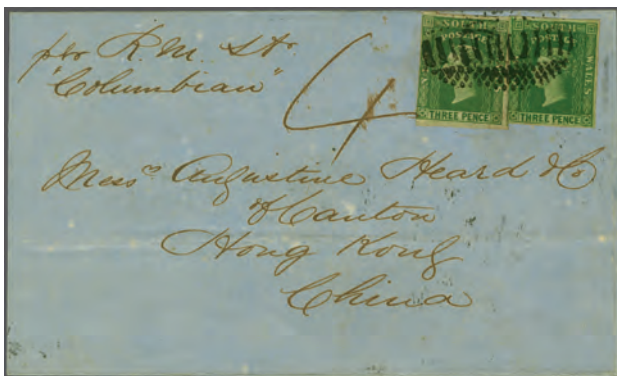 per R.M. Str
"Columbian"
4
SOUTH
POSTAGE
THREE PENCE
SOUTH
WALES
THREE PENCE
Messrs Augustine Heard & Co
Canton
Hong Kong
China